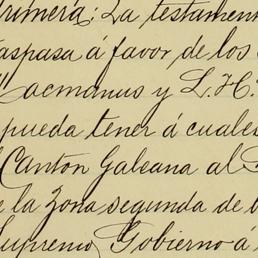 Primera: La testament
aspasa á favor de los
Macmanus y L. H.
pueda tener á cuales
Canton Galeana al
la Zona segunda de
Supremo Gobierno á